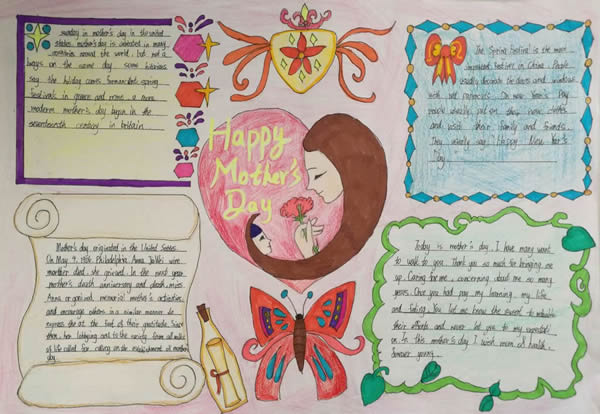 sunday in mother's day in the united
states. mother's day is celebrated in many
countries around the world, but not a
always on the same day. some historians
say the holiday comes from ancient spring
festivals in greece and rome. a more
modern mother's day began in the
seventeenth century in britain
Happy
Mother's
Day
The Spring Festival is the most
important festival in China. People
usually decorate the doors and windows
with red papercuts. On new Year's Day
people usually put on they new clothes
and visit their family and friends.
They usually say: Happy New Year's
Day
Mother's day originated in the United States.
On May 9, Philadelphia, Anna
mother died, she grieved. In the next year
mother's death anniversary and death, miss
Anna organized memorial mother's activities,
and encourage others in a similar manner to
express the at the foot of their gratitude. Since
then, her lobbying and to the society from all walks
of life called for calling on the establishment of mother's
day.
Today is mother's day. I have many want
to wolk to you. Thank you so much for bringing me
up. Caring for me concerning about me so many
years. Once you had pay my learning, my life
and faling. You let me know the parent to
their efforts and never let you to my
on. In this mother's day I wish mom of health,
forever young.